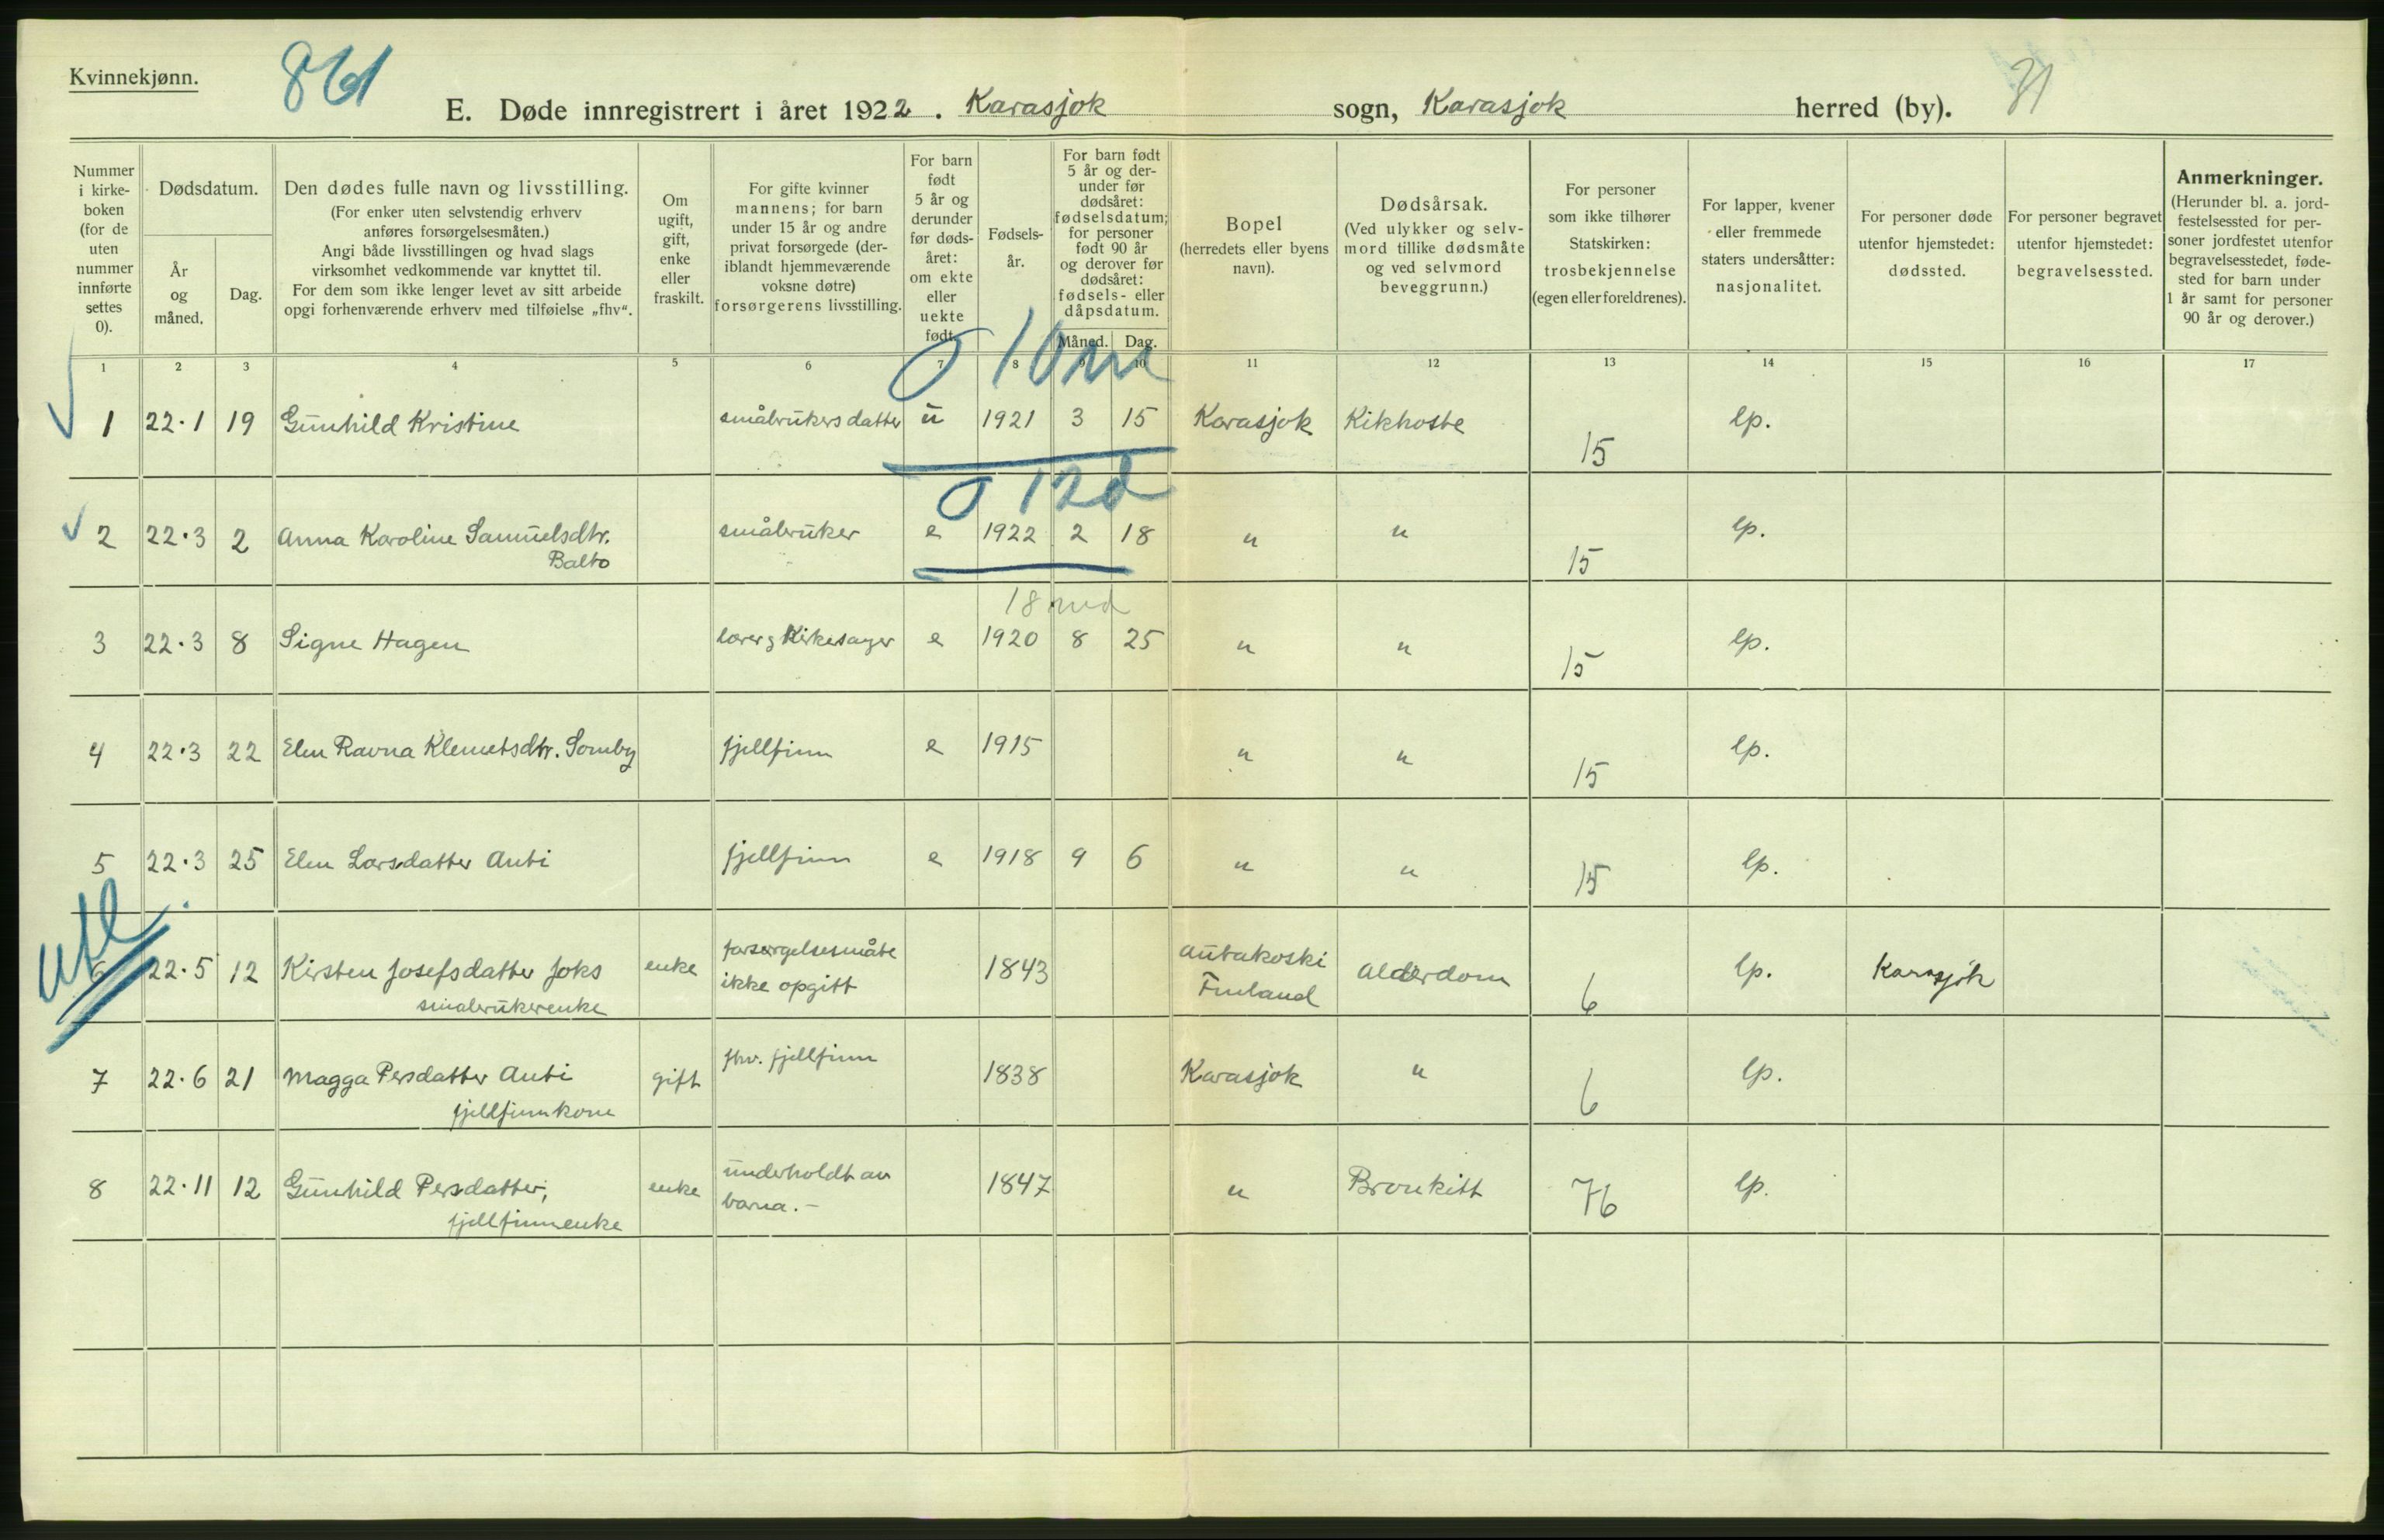 Kvinnekjønn.
861
E. Døde innregistrert i året 1922. Karasjok sogn, Karasjok herred (by).
Nummer i kirke-boken (for de uten nummer innførte settes 0).
Dødsdatum.
År og måned.
Dag.
Den dødes fulle navn og livsstilling.
(For enker uten selvstendig erhverv
anføres forsørgelsesmåten.)
Angi både livsstillingen og hvad slags
virksomhet vedkommende var knyttet til.
For dem som ikke lenger levet av sitt arbeide
opgi forhenværende erhverv med tilføielse „fhv“.
Om ugift, gift, enke eller fraskilt.
For gifte kvinner
mannens; for barn
under 15 år og andre
privat forsørgede (der-
iblandt hjemmeværende
voksne døtre)
forsørgerens livsstilling.
For barn født 5 år og derunder før døds-året: om ekte eller uekte født.
Fødsels-år.
For barn født
5 år og der-
under før
dødsåret:
fødselsdatum;
for personer
født 90 år
og derover før
dødsåret:
fødsels- eller
dåpsdatum.
Måned. Dag.
Bopel
(herredets eller byens
navn).
Dødsårsak.
(Ved ulykker og selv-
mord tillike dødsmåte
og ved selvmord
beveggrunn.)
For personer
som ikke tilhører
Statskirken:
trosbekjennelse
(egen eller foreldrenes).
For lapper, kvener
eller fremmede
staters undersåtter:
nasjonalitet.
For personer døde
utenfor hjemstedet:
dødssted.
For personer begravet
utenfor hjemstedet:
begravelsessted.
Anmerkninger.
(Herunder bl. a. jord-
festelsessted for per-
soner jordfestet utenfor
begravelsesstedet, føde-
sted for barn under
1 år samt for personer
90 år og derover.)
1 2 3 4 5 6 7 8 9 10 11 12 13 14 15 16 17
0 10 m
1 22·1 19 Gunhild Kristine småbrukers datter u 1921 3 15 Karasjok Kikhoste 15 lp.
0 12 d
2 22·3 2 Anna Karoline Samuelsdtr. småbruker e 1922 2 18 " " 15 lp.
Balto
18 md
3 22·3 8 Signe Hagen lærer og Kirkesanger e 1920 8 25 " " 15 lp.
4 22·3 22 Elen Ravna Klemetsdtr. Somby fjellfinn e 1915 " " 15 lp.
5 22·3 25 Elen Larsdatter Anti fjellfinn e 1918 9 6 " " 15 lp.
utl
6 22·5 12 Kirsten Josefsdatter Joks enke forsørgelsesmåte ikke opgitt 1843 Autakoski Finland Alderdom 6 lp. Karasjok
småbrukerenke
7 22·6 21 Magga Persdatter Anti gift fhv. fjellfinn 1838 Karasjok " 6 lp.
fjellfinnkone
8 22·11 12 Gunhild Persdatter, enke underholdt av barna.- 1847 " Bronkitt 76 lp.
fjellfinnenke